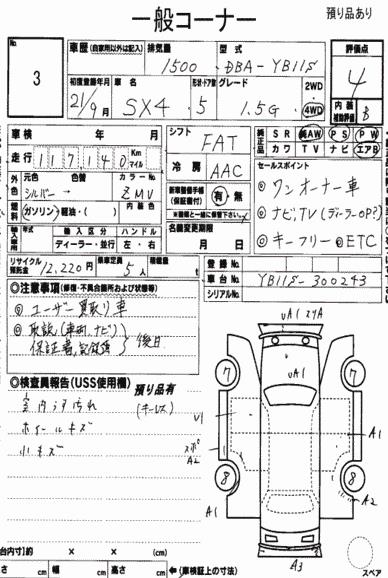 一般コーナー
預り品あり
No.
3
車歴 (自家用以外は記入)
排気量
1500
型式
DBA-YB11S
評価点
4
初度登録年月
21/9月
車名
SX4
形状・ドア数
5
グレード
1.5G
2WD
4WD
内装
補助評価
B
車検 年 月
走行 117,140 Km マイル
シフト
FAT
冷房
AAC
純正品
SR AW PS PW
カワ TV ナビ エアB
外色
元色 色替 カラーNo.
シルバー→ ZMV
燃料
ガソリン・軽油・( )
内装色
セールスポイント
◎ワンオーナー車
◎ナビTV(ディーラーOP?)
◎キーフリー◎ETC
新車整備手帳
(保証書付)
有・無
※書類と一緒に保管下さい
輸入車
年式
輸入区分
ディーラー・並行
ハンドル
左・右
名義変更期限
月 日
リサイクル
預託金
12,220円
乗車定員
5人
積載量
t
登録No.
車台No.
YB11S-300243
シリアルNo.
◎注意事項(修復・不具合箇所および状態等)
◎ユーザー買取り車
◎取説(車両、ナビ)
保証書、記録簿 後日
◎検査員報告(USS使用欄)
預り品有
(キーレス)
室内ウチ汚れ
ホイールキズ
小キズ
UA1
UA1
7
7
8
8
U1
A2
A1
A1
A2
A3
荷台内寸)約 × × (cm)
さ cm 幅 cm 高さ cm
←(車検証上の寸法)
スペア